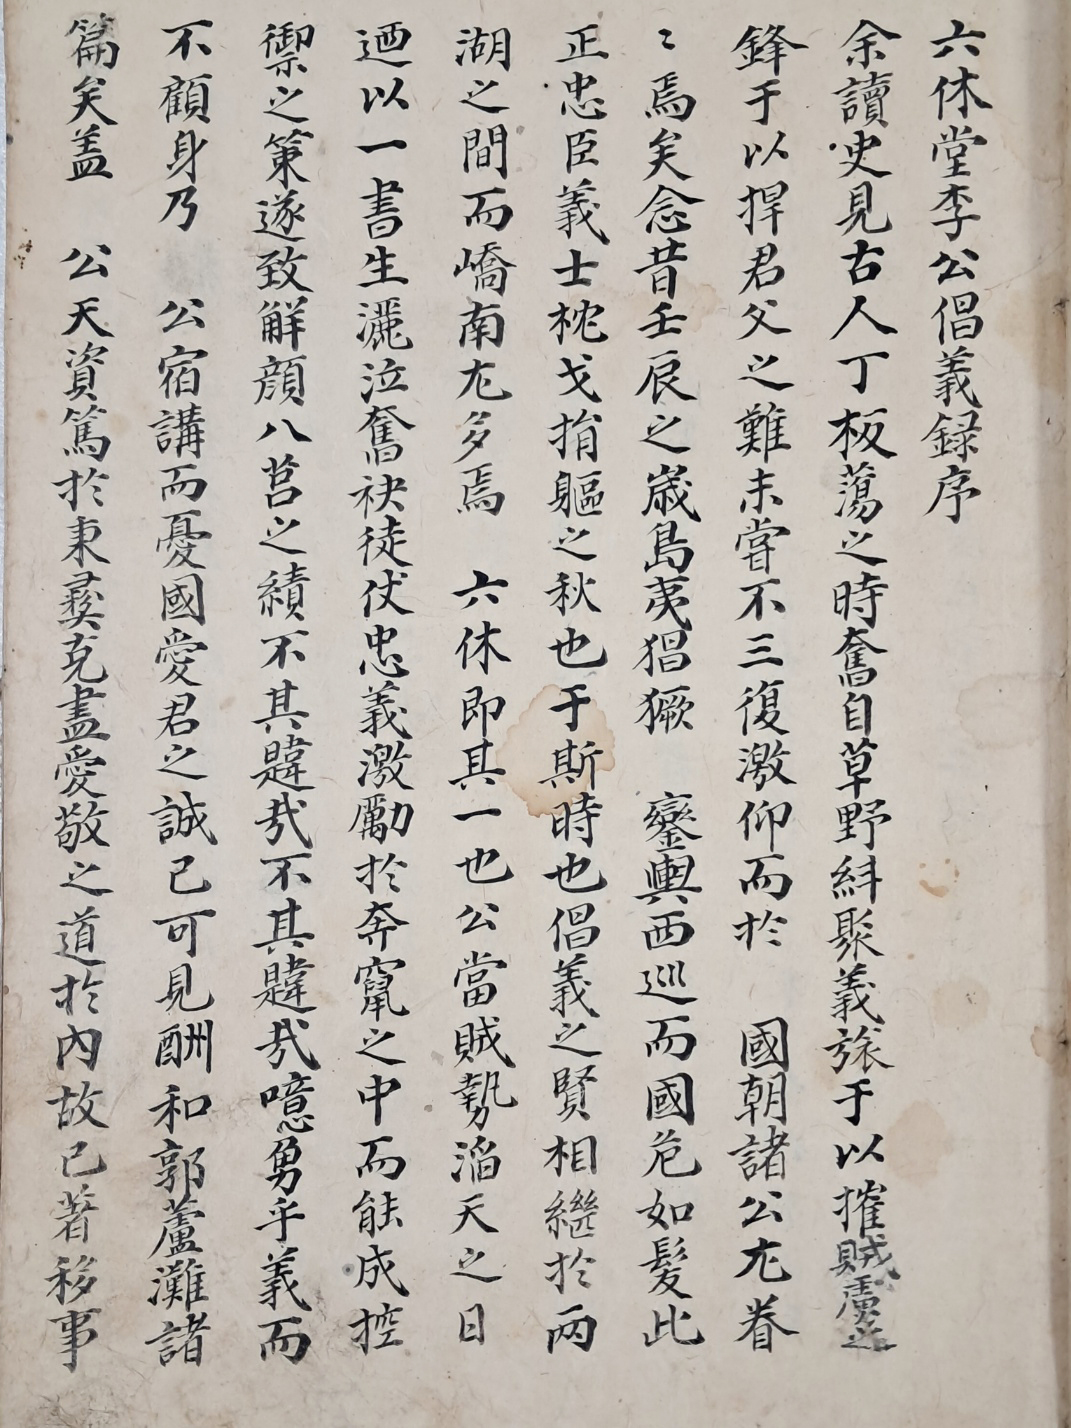 六休堂李公倡義録序
余讀史見古人丁板蕩之時奮自草野糾聚義旅于以摧賊虜之
鋒于以捍君父之難未嘗不三復激仰而於 國朝諸公尤眷
〻焉矣念昔壬辰之歲島夷猖獗 鑾輿西巡而國危如髮此
正忠臣義士枕戈捐軀之秋也于斯時也倡義之賢相繼於兩
湖之間而嶠南尤多焉 六休即其一也公當賊勢滔天之日
迺以一書生灑泣奮袂徒仗忠義激勵於奔竄之中而能成控
禦之策遂致解顔八莒之績不其韙哉不其韙哉噫勇乎義而
不顧身乃 公宿講而憂國愛君之誠已可見酬和郭蘆灘諸
篇矣盖 公天資篤於秉彛克盡愛敬之道於內故已著移事